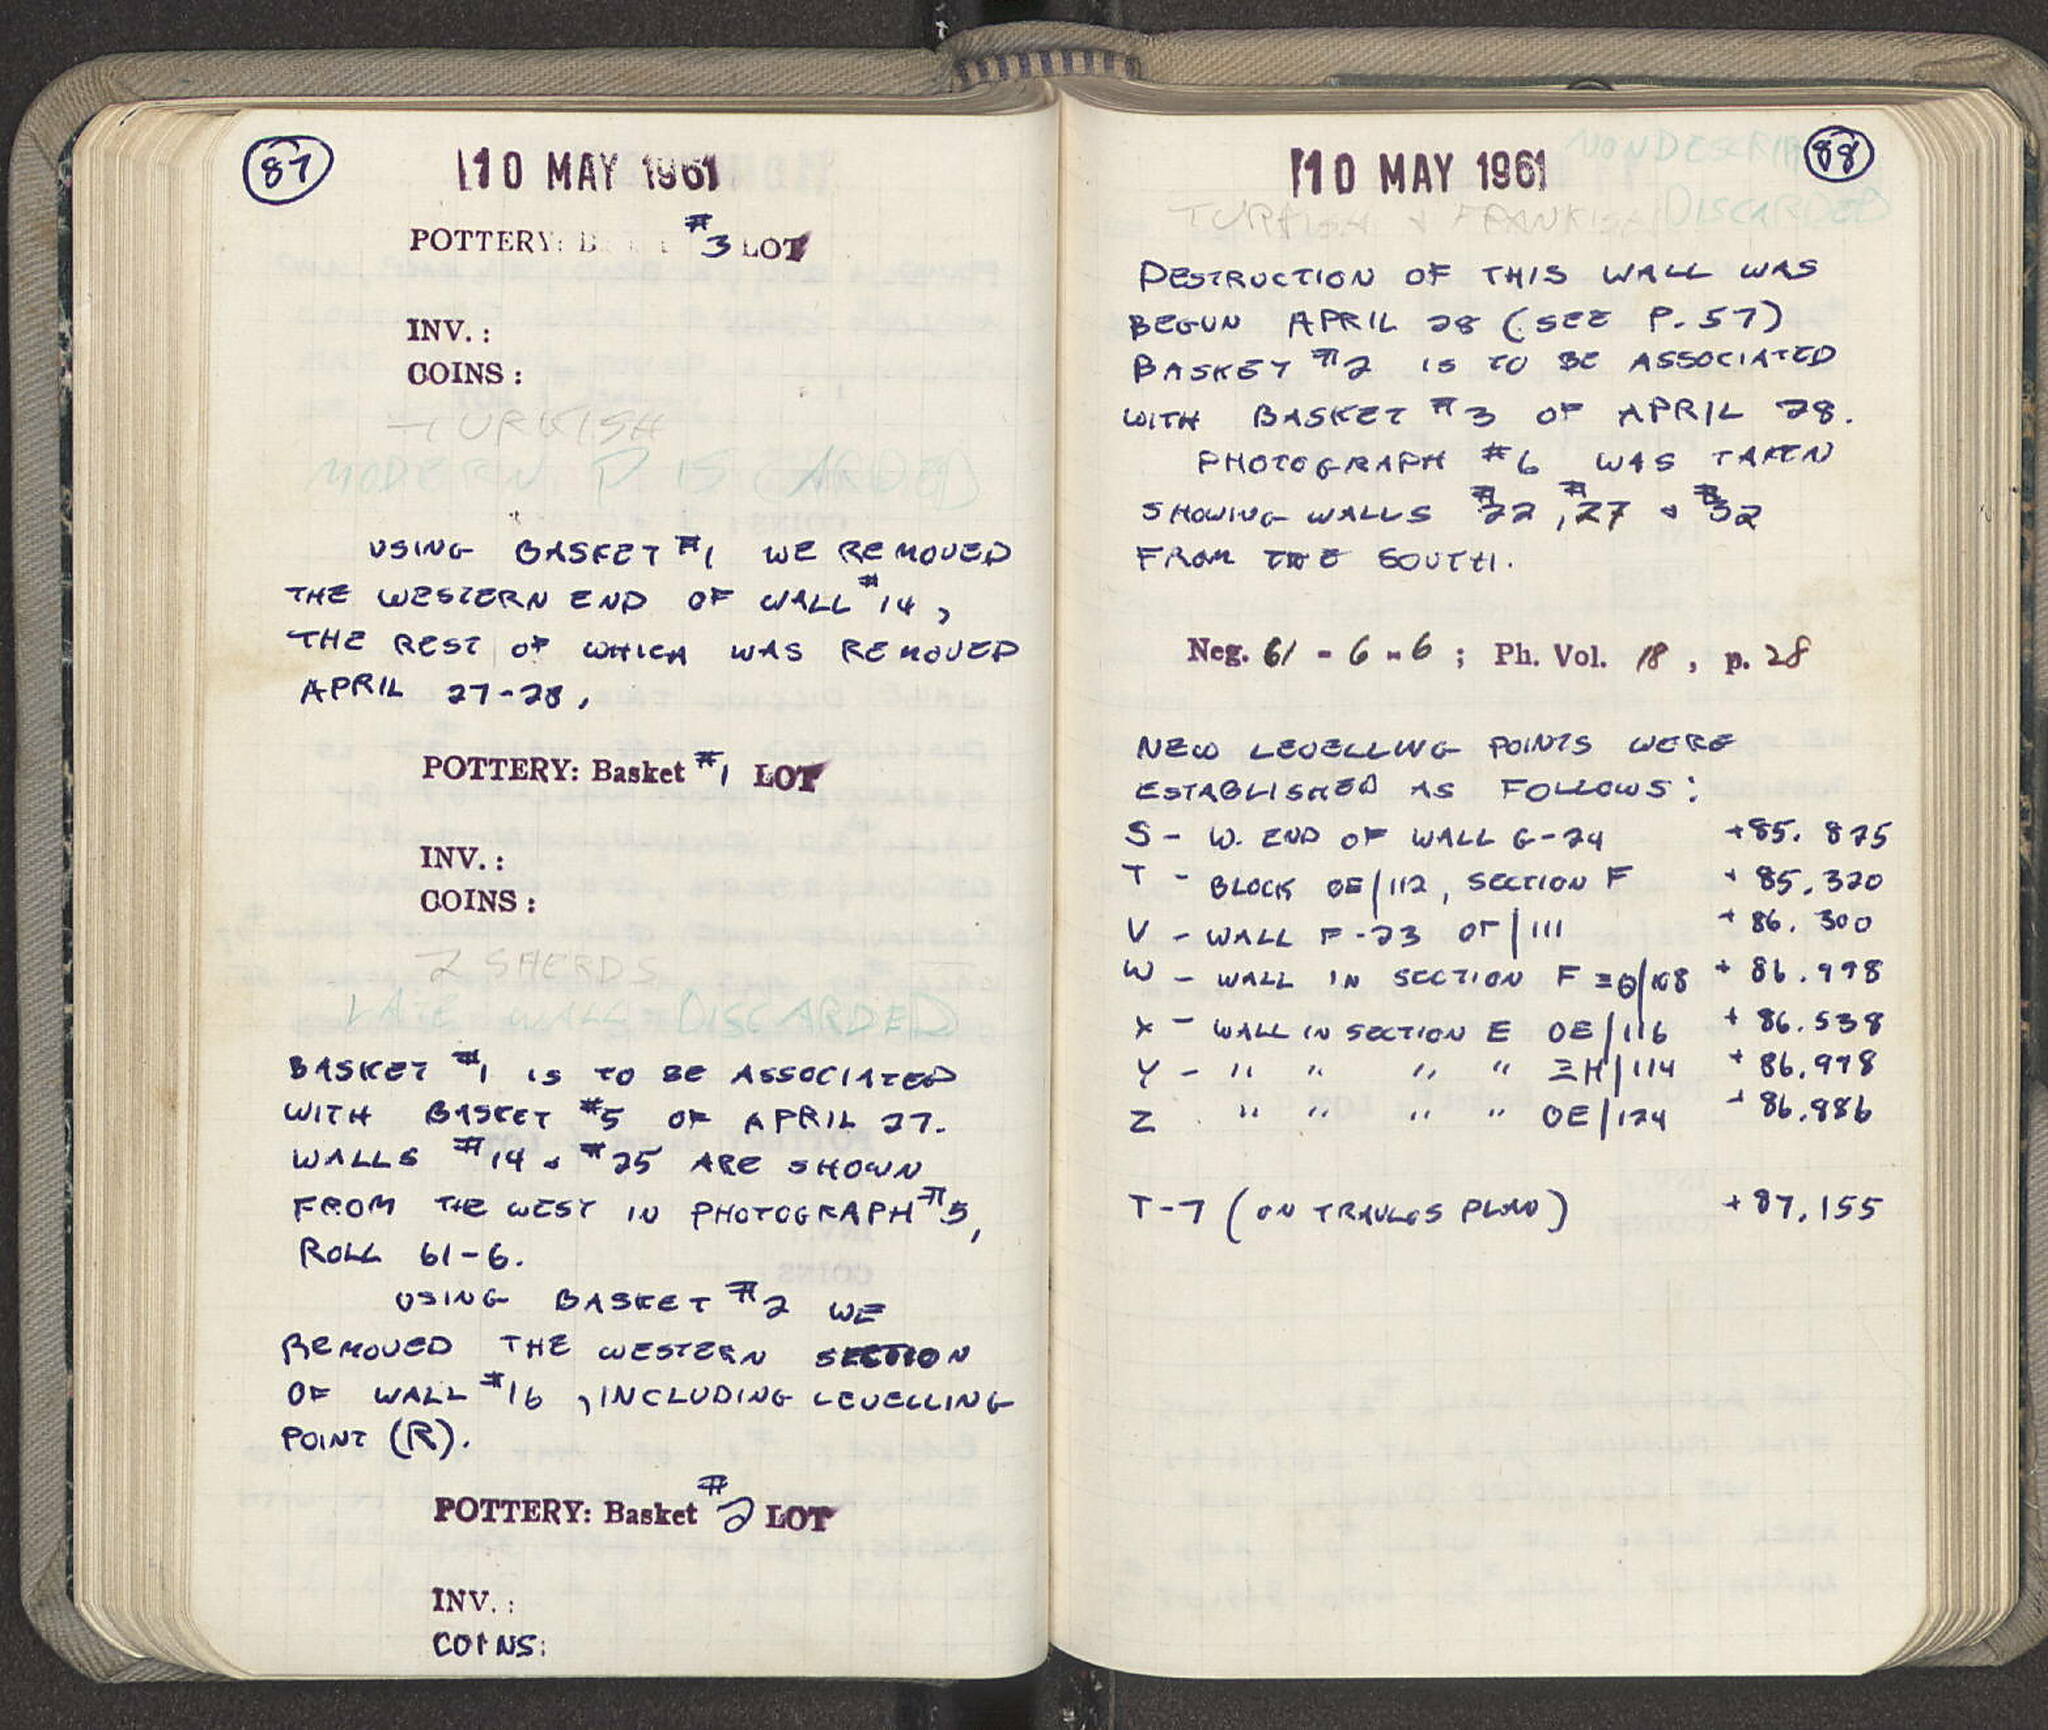 87
10 MAY 1961
POTTERY: B #3 LOT
INV.:
COINS:
TURKISH
MODERN DISCARDED
USING BASKET #1 WE REMOVED
THE WESTERN END OF WALL #14,
THE REST OF WHICH WAS REMOVED
APRIL 27-28.
POTTERY: Basket #1 LOT
INV.:
COINS:
2 SHERDS
LATE WALL DISCARDED
BASKET #1 IS TO BE ASSOCIATED
WITH BASKET #5 OF APRIL 27.
WALLS #14 & #25 ARE SHOWN
FROM THE WEST IN PHOTOGRAPH #5,
ROLL 61-6.
USING BASKET #2 WE
REMOVED THE WESTERN SECTION
OF WALL #16, INCLUDING LEVELLING
POINT (R).
POTTERY: Basket #2 LOT
INV.:
COINS:
88
10 MAY 1961
NONDESCRIPT
TURKISH & FRANKISH DISCARDED
DESTRUCTION OF THIS WALL WAS
BEGUN APRIL 28 (SEE P. 57)
BASKET #2 IS TO BE ASSOCIATED
WITH BASKET #3 OF APRIL 28.
PHOTOGRAPH #6 WAS TAKEN
SHOWING WALLS #22, #27 & #32
FROM THE SOUTH.
Neg. 61 - 6 - 6 ; Ph. Vol. 18, p. 28
NEW LEVELLING POINTS WERE
ESTABLISHED AS FOLLOWS:
S - W. END OF WALL G-24 +85.825
T - BLOCK OE/112, SECTION F +85.320
V - WALL F-23 OΓ/111 +86.300
W - WALL IN SECTION F ΞΘ/108 +86.998
X - WALL IN SECTION E OE/116 +86.538
Y - " " " " ΞH/114 +86.978
Z " " " " OE/124 +86.886
T-7 (ON TRAVLOS PLAN) +87.155